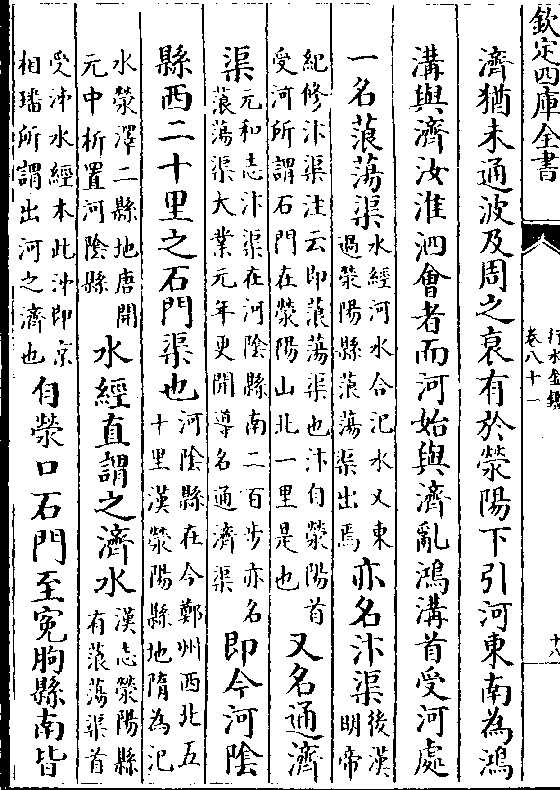 欽定四庫全書
行水金鑑
卷八十一
濟猶未通波及周之衰有於滎陽下引河東南為鴻
溝與濟汝淮泗會者而河始與濟亂鴻溝首受河處
一名蒗蕩渠
水經河水合汜水又東
過滎陽縣蒗蕩渠出焉
亦名汴渠
後漢
明帝
紀修汴渠注云即蒗蕩渠也汴自滎陽首
受河所謂石門在滎陽山北一里是也
又名通濟
渠
元和志汴渠在河陰縣南二百步亦名
蒗蕩渠大業元年更開導名通濟渠
即今河陰
縣西二十里之石門渠也
河陰縣在今鄭州西北五
十里漢滎陽縣地隋為汜
水滎澤二縣地唐開
元中析置河陰縣
水經直謂之濟水
漢志滎陽縣
有蒗蕩渠首
受泲水經本此泲即京
相璠所謂出河之濟也
自滎口石門至寃朐縣南皆